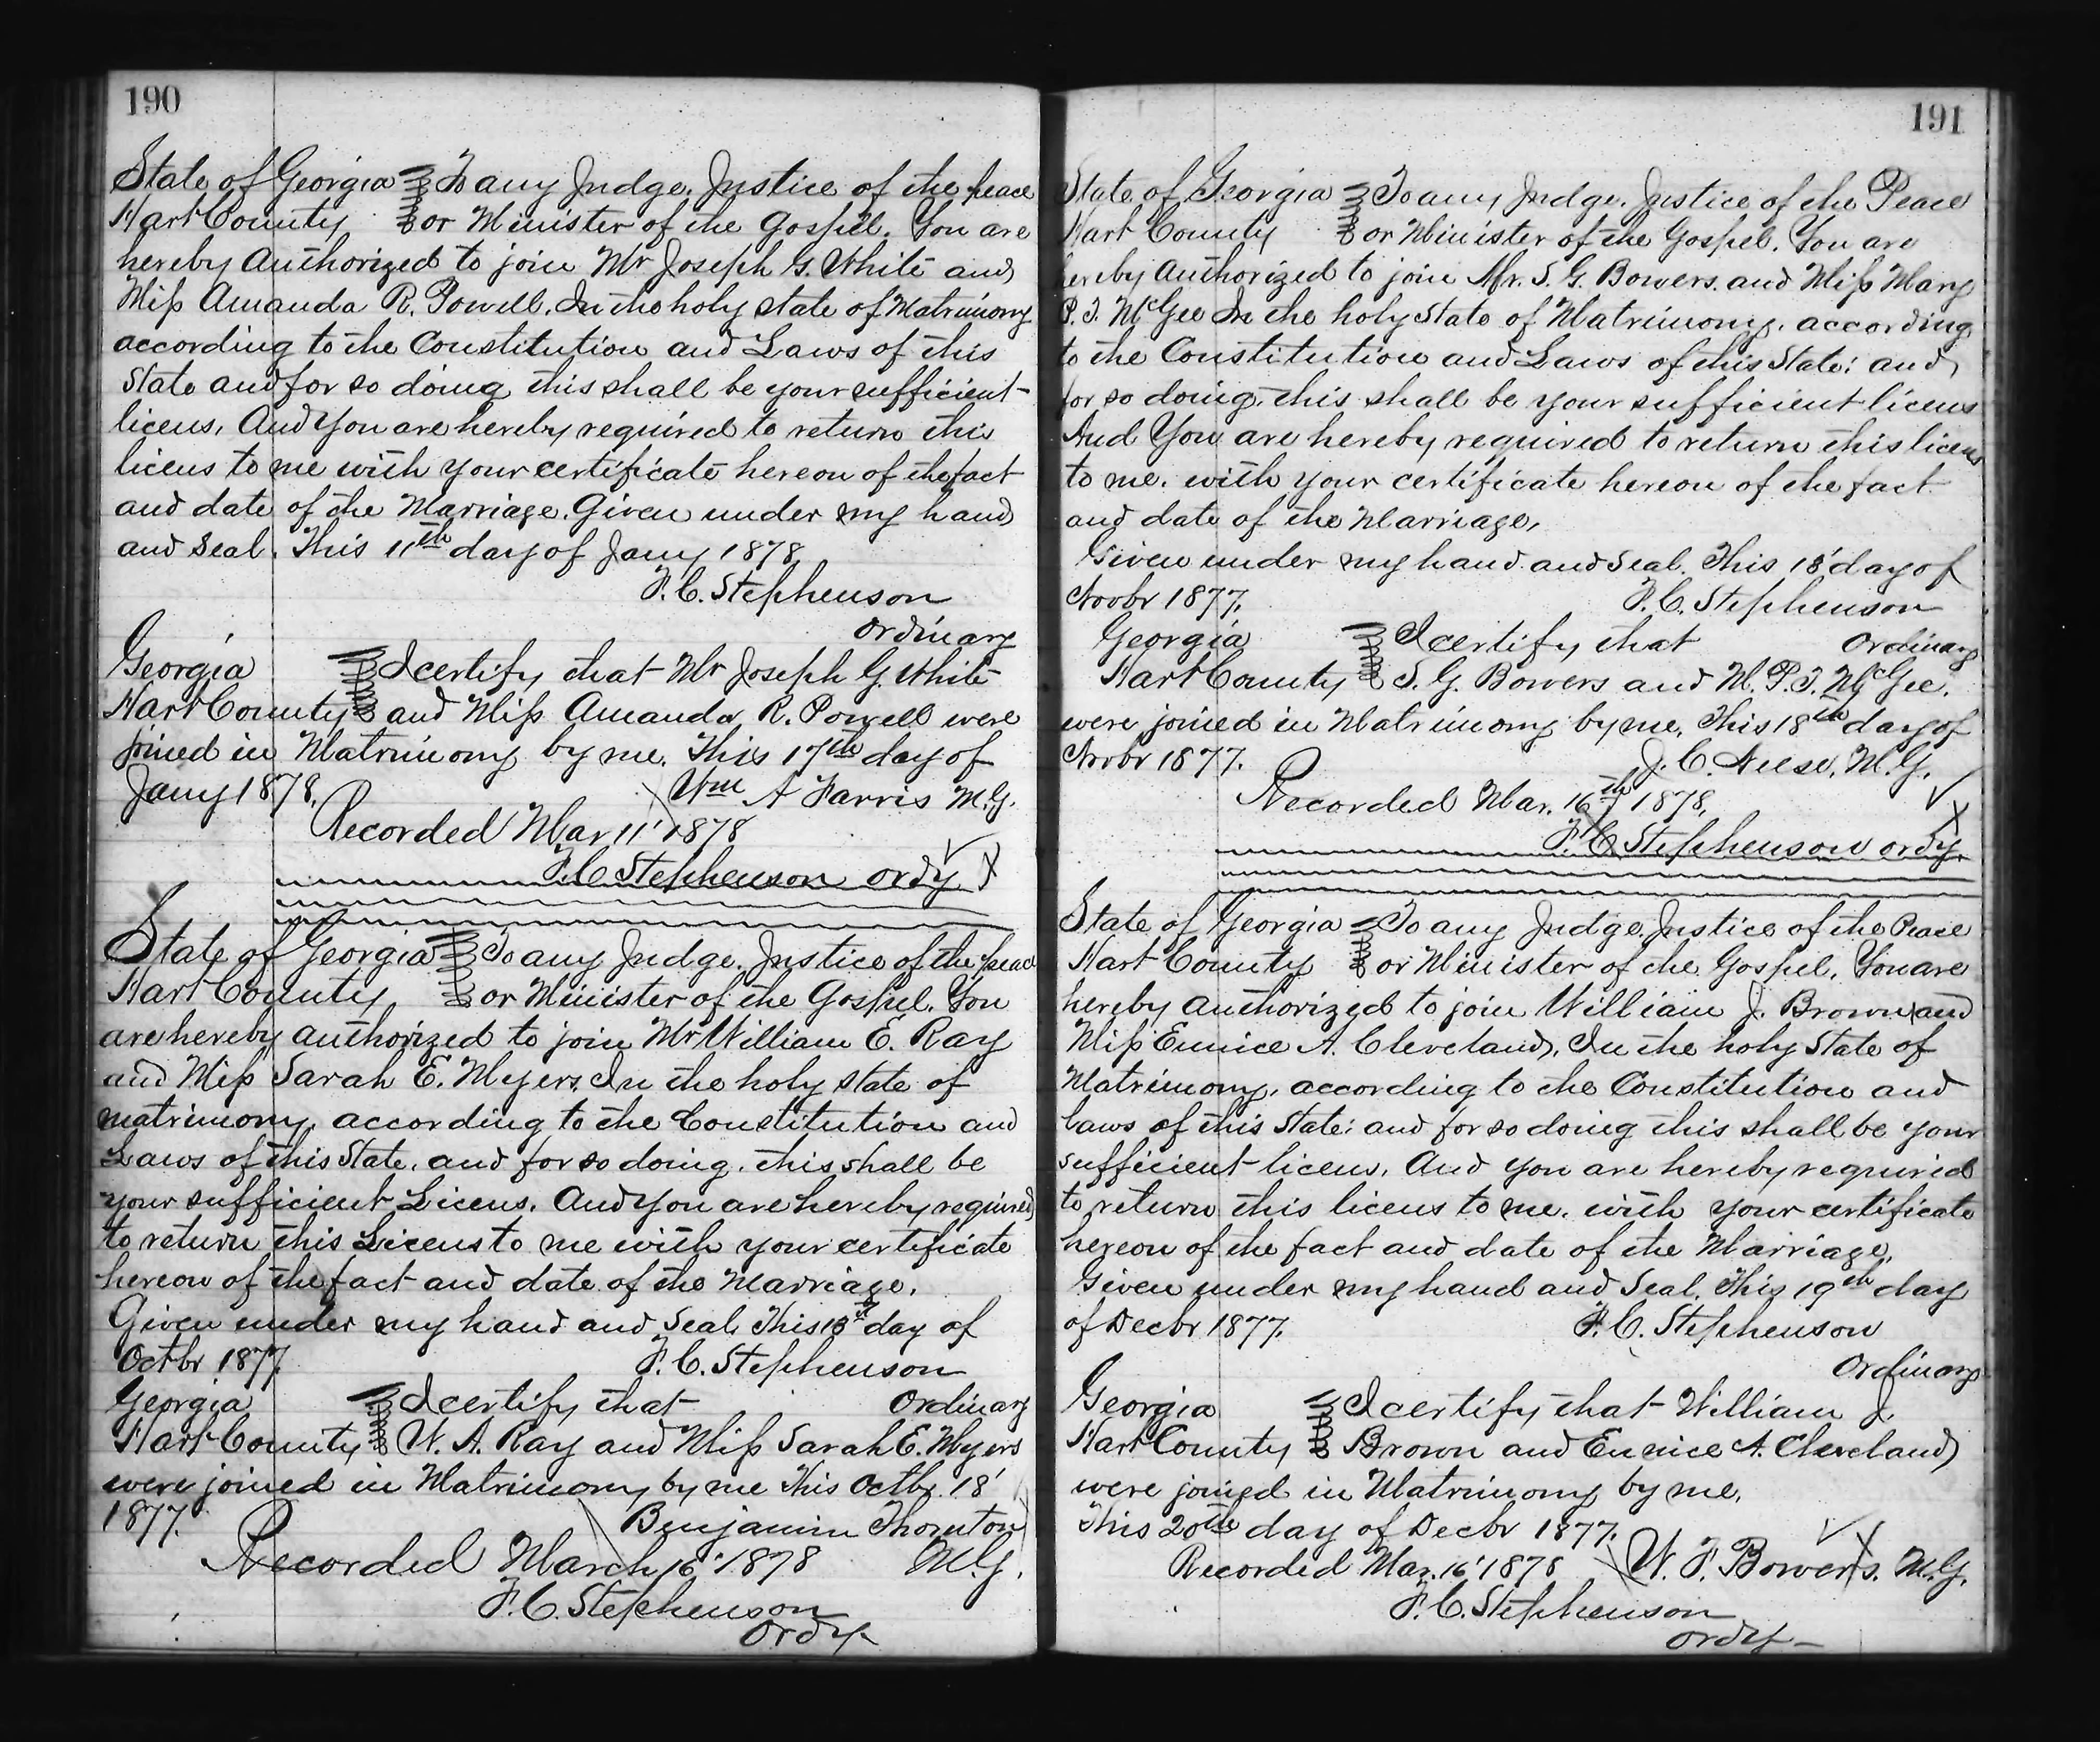 190
State of Georgia To any Judge. Justice of the peace
Hart County or Minister of the Gospel. You are
hereby authorized to join Mr Joseph G. White and
Miss Amanda R. Powell. In the holy state of Matrimony
according to the Constitution and Laws of this
State and for so doing this shall be your sufficient
licens, And You are hereby required to return this
licens to me with your certificate hereon of the fact
and date of the Marriage. Given under my hand
and Seal. This 11th day of Jany 1878
F. C. Stephenson
Ordinary
Georgia I certify that Mr Joseph G. White
Hart County and Miss Amanda R. Powell were
joined in Matrimony by me. This 17th day of
Jany 1878. Wm A Farris M.G.
Recorded Mar 11' 1878
F. C Stephenson ordy
State of Georgia To any Judge. Justice of the peace
Hart County, or Minister of the Gospel. You
are hereby authorized to join Mr William E. Ray
and Miss Sarah E. Myers. In the holy state of
matrimony, according to the Constitution and
Laws of this State, and for so doing, this shall be
your sufficient Licens. And You are hereby required
to return this Licens to me with your certificate
hereon of the fact and date of the Marriage.
Given under my hand and Seal, This 18th day of
Octbr 1877. F. C. Stephenson
Georgia I certify that Ordinary
Hart County W. A. Ray and Miss Sarah E. Myers
were joined in Matrimony by me This Octbr 18'
1877. Benjamin Thornton
Recorded March 16' 1878 M.G.
F. C. Stephenson
Ordy
191
State of Georgia To any Judge. Justice of the Peace
Hart County or Minister of the Gospel. You are
hereby authorized to join Mr. S. G. Bowers. and Miss Mary
P. J. McGee In the holy State of Matrimony, according
to the Constitution and Laws of this State: and
for so doing, this shall be your sufficient licens
And You are hereby required to return this licens
to me, with your certificate hereon of the fact
and date of the Marriage,
Given under my hand and Seal. This 18' day of
Novbr 1877. F. C. Stephenson
Georgia I certify that Ordinary
Hart County S. G. Bowers and M. P. J. McGee.
were joined in Matrimony by me, This 18th day of
Novbr 1877. J. C. Neese, M.G.
Recorded Mar. 16th 1878,
F. C Stephenson ordy.
State of Georgia To any Judge. Justice of the Peace
Hart County or Minister of the Gospel, You are
hereby authorized to join William J. Brown and
Miss Eunice A. Cleveland, In the holy State of
Matrimony, according to the Constitution and
Laws of this State: and for so doing this shall be your
sufficient licens, And you are hereby required
to return this licens to me, with your certificate
hereon of the fact and date of the Marriage,
Given under my hand and Seal, This 19th day
of Decbr 1877. F. C. Stephenson
Ordinary
Georgia I certify that William J.
Hart County Brown and Eunice A. Cleveland
were joined in Matrimony by me,
This 20th day of Decbr 1877.
Recorded Mar. 16' 1878 W. F. Bowers. M.G.
F. C. Stephenson
ordy